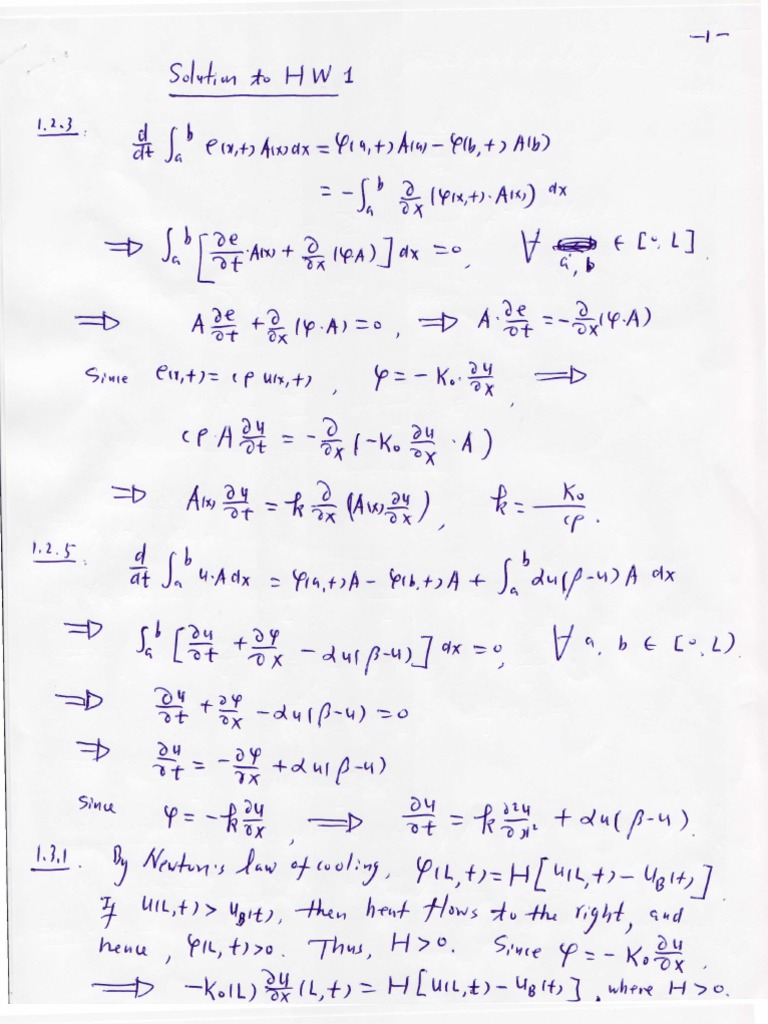 -1-
Solution to HW 1
1.2.3. d/dt ∫_a^b e(x,t) A(x) dx = φ(a,t) A(a) - φ(b,t) A(b)
= -∫_a^b ∂/∂x (φ(x,t)·A(x)) dx
⟹ ∫_a^b [∂e/∂t·A(x) + ∂/∂x (φA)] dx = 0, ∀ a, b ∈ [0, L].
⟹ A ∂e/∂t + ∂/∂x (φ·A) = 0, ⟹ A·∂e/∂t = -∂/∂x (φ·A)
Since e(x,t) = cρ u(x,t), φ = -K₀·∂u/∂x, ⟹
cρ·A ∂u/∂t = -∂/∂x (-K₀ ∂u/∂x ·A)
⟹ A(x) ∂u/∂t = k ∂/∂x (A(x) ∂u/∂x), k = K₀/cρ.
1.2.5. d/dt ∫_a^b u·A dx = φ(a,t)A - φ(b,t)A + ∫_a^b αu(β-u)A dx
⟹ ∫_a^b [∂u/∂t + ∂φ/∂x - αu(β-u)] dx = 0, ∀ a, b ∈ [0, L).
⟹ ∂u/∂t + ∂φ/∂x - αu(β-u) = 0
⟹ ∂u/∂t = -∂φ/∂x + αu(β-u)
Since φ = -k ∂u/∂x, ⟹ ∂u/∂t = k ∂²u/∂x² + αu(β-u).
1.3.1. By Newton's law of cooling, φ(L,t) = H[u(L,t) - u_B(t)].
If u(L,t) > u_B(t), then heat flows to the right, and
hence, φ(L,t) > 0. Thus, H > 0. Since φ = -K₀ ∂u/∂x,
⟹ -K₀(L) ∂u/∂x (L,t) = H[u(L,t) - u_B(t)], where H > 0.